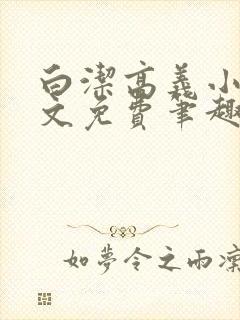 白潔高義小
文免費筆趣
如夢令之雨凜